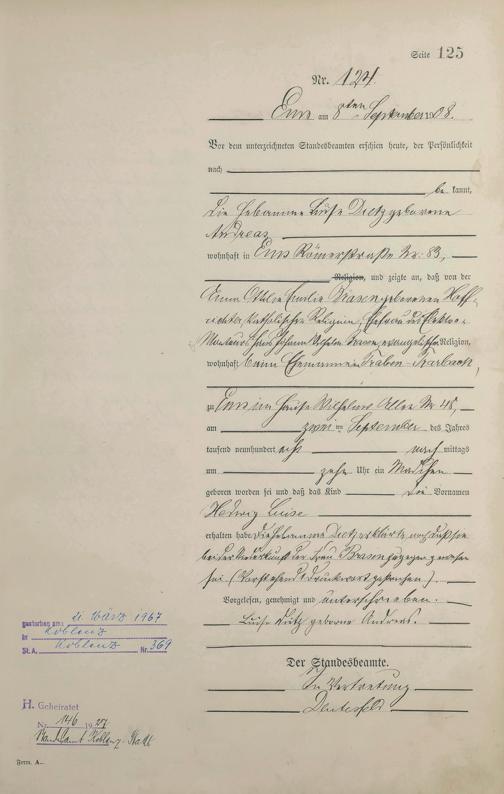 Seite 125
Nr. 124.
Ems am 8ten September 1908.
Vor dem unterzeichneten Standesbeamten erschien heute, der Persönlichkeit
nach
be kannt,
die Hebamme Luise Dietz geborene
Andreas
wohnhaft in Ems Römerstraße Nr. 83,
Religion, und zeigte an, daß von der
Anna Emilie geborenen Hoff-
katholischer Religion, Ehefrau des Elektro-
Monteurs Hans Johann Wilhelm evangelischer Religion,
wohnhaft beim Ehemann in Traben-Trarbach,
zu Ems im Hause Wilhelms Allee Nr 48,
am zwei ten September des Jahres
tausend neunhundert acht nach mittags
um zehn Uhr ein Mädchen
geboren worden sei und daß das Kind die Vornamen
Hedwig Luise
erhalten habe. Die Hebamme Dietz erklärte noch daß sie
bei der Niederkunft der Frau zugegen gewesen
sei (Vorstehend 1 Druckwort gestrichen).
Vorgelesen, genehmigt und unterschrieben.
Luise Dietz geborene Andreas.
Der Standesbeamte.
In Vertretung
gestorben am: 21. März 1967
in Koblenz
St. A. Koblenz Nr. 369
H. Geheiratet
Nr. 146 1927
Standesamt Koblenz-Stadt
Form. A.